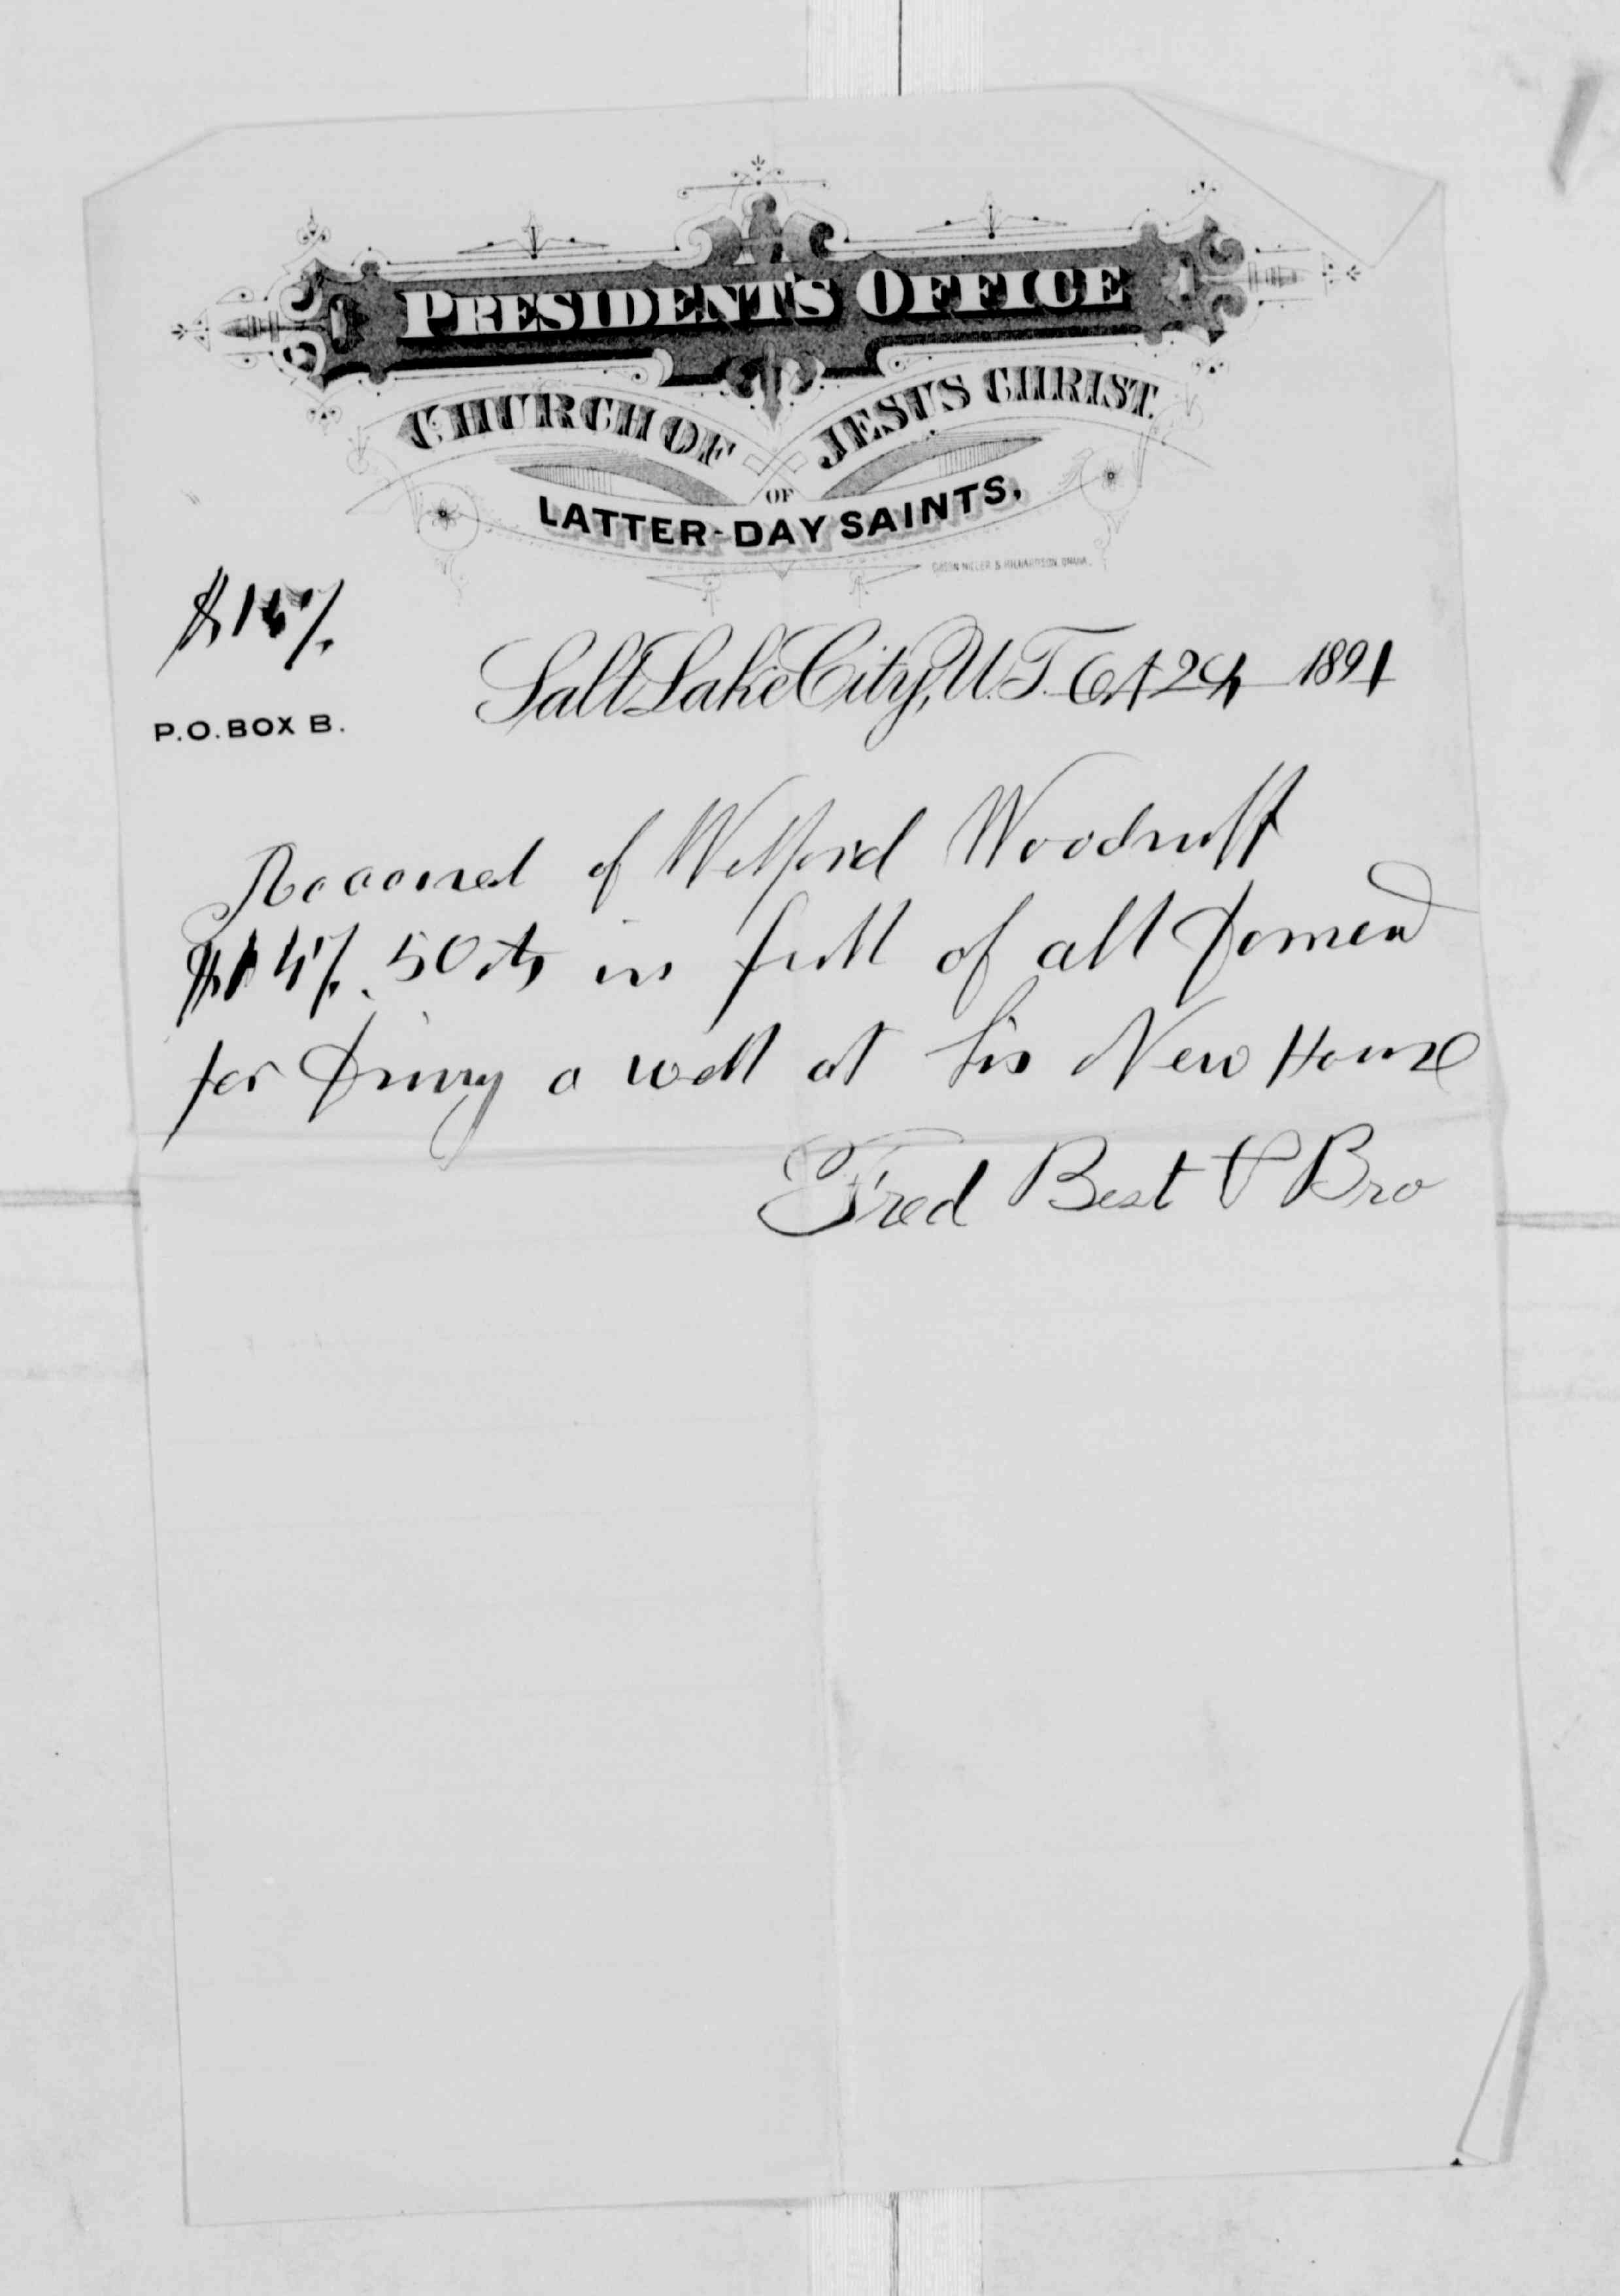 PRESIDENT'S OFFICE
CHURCH OF JESUS CHRIST
OF
LATTER-DAY SAINTS,
P.O. BOX B.
Salt Lake City, U.T. Oct 24 1891
Received of Wilford Woodruff
50 cts in full of all Demand
for Driving a well at his New House
Fred Best & Bro